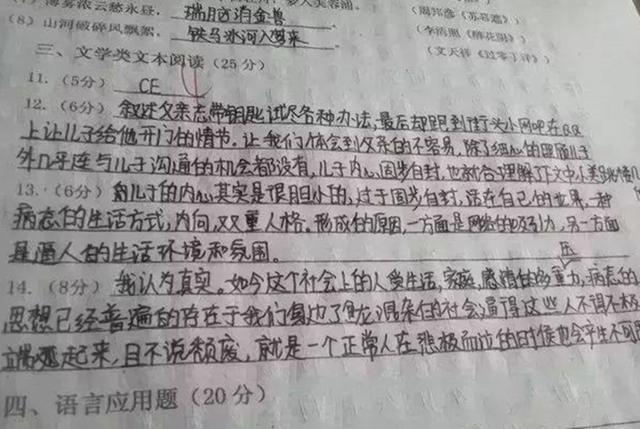 薄雾浓云愁永昼，瑞脑消金兽 （周邦彦《苏幕遮》）
（8）山河破碎风飘絮，铁马冰河入梦来 （李清照《醉花阴》）
（文天祥《过零丁洋》）
三、文学类文本阅读（25分）
11.（5分） CE
12.（6分） 叙述父亲忘带钥匙试尽各种办法，最后却跑到街头小网吧在QQ
上让儿子给他开门的情节。让我们体会到父亲的不容易，除了细心的照顾儿子
外几乎连与儿子沟通的机会都没有，儿子内心固步自封，也就合了理解了文中小
13.（6分） 儿子的内心其实是很胆小的，过于固步自封，活在自己的世界，一种
病态的生活方式，内向，双重人格。形成的原因，一方面是网络的吸引力，另一方面
是逼人的生活环境和氛围。
压
14.（8分） 我认为真实。如今这个社会上的人受生活，家庭，感情的多重力，病态的
思想已经普遍的存在于我们身边了鱼龙混杂的社会逼得这些人不得不
起来，且不说颓废，就是一个正常人在悲极而泣的时候也会
四、语言应用题（20分）